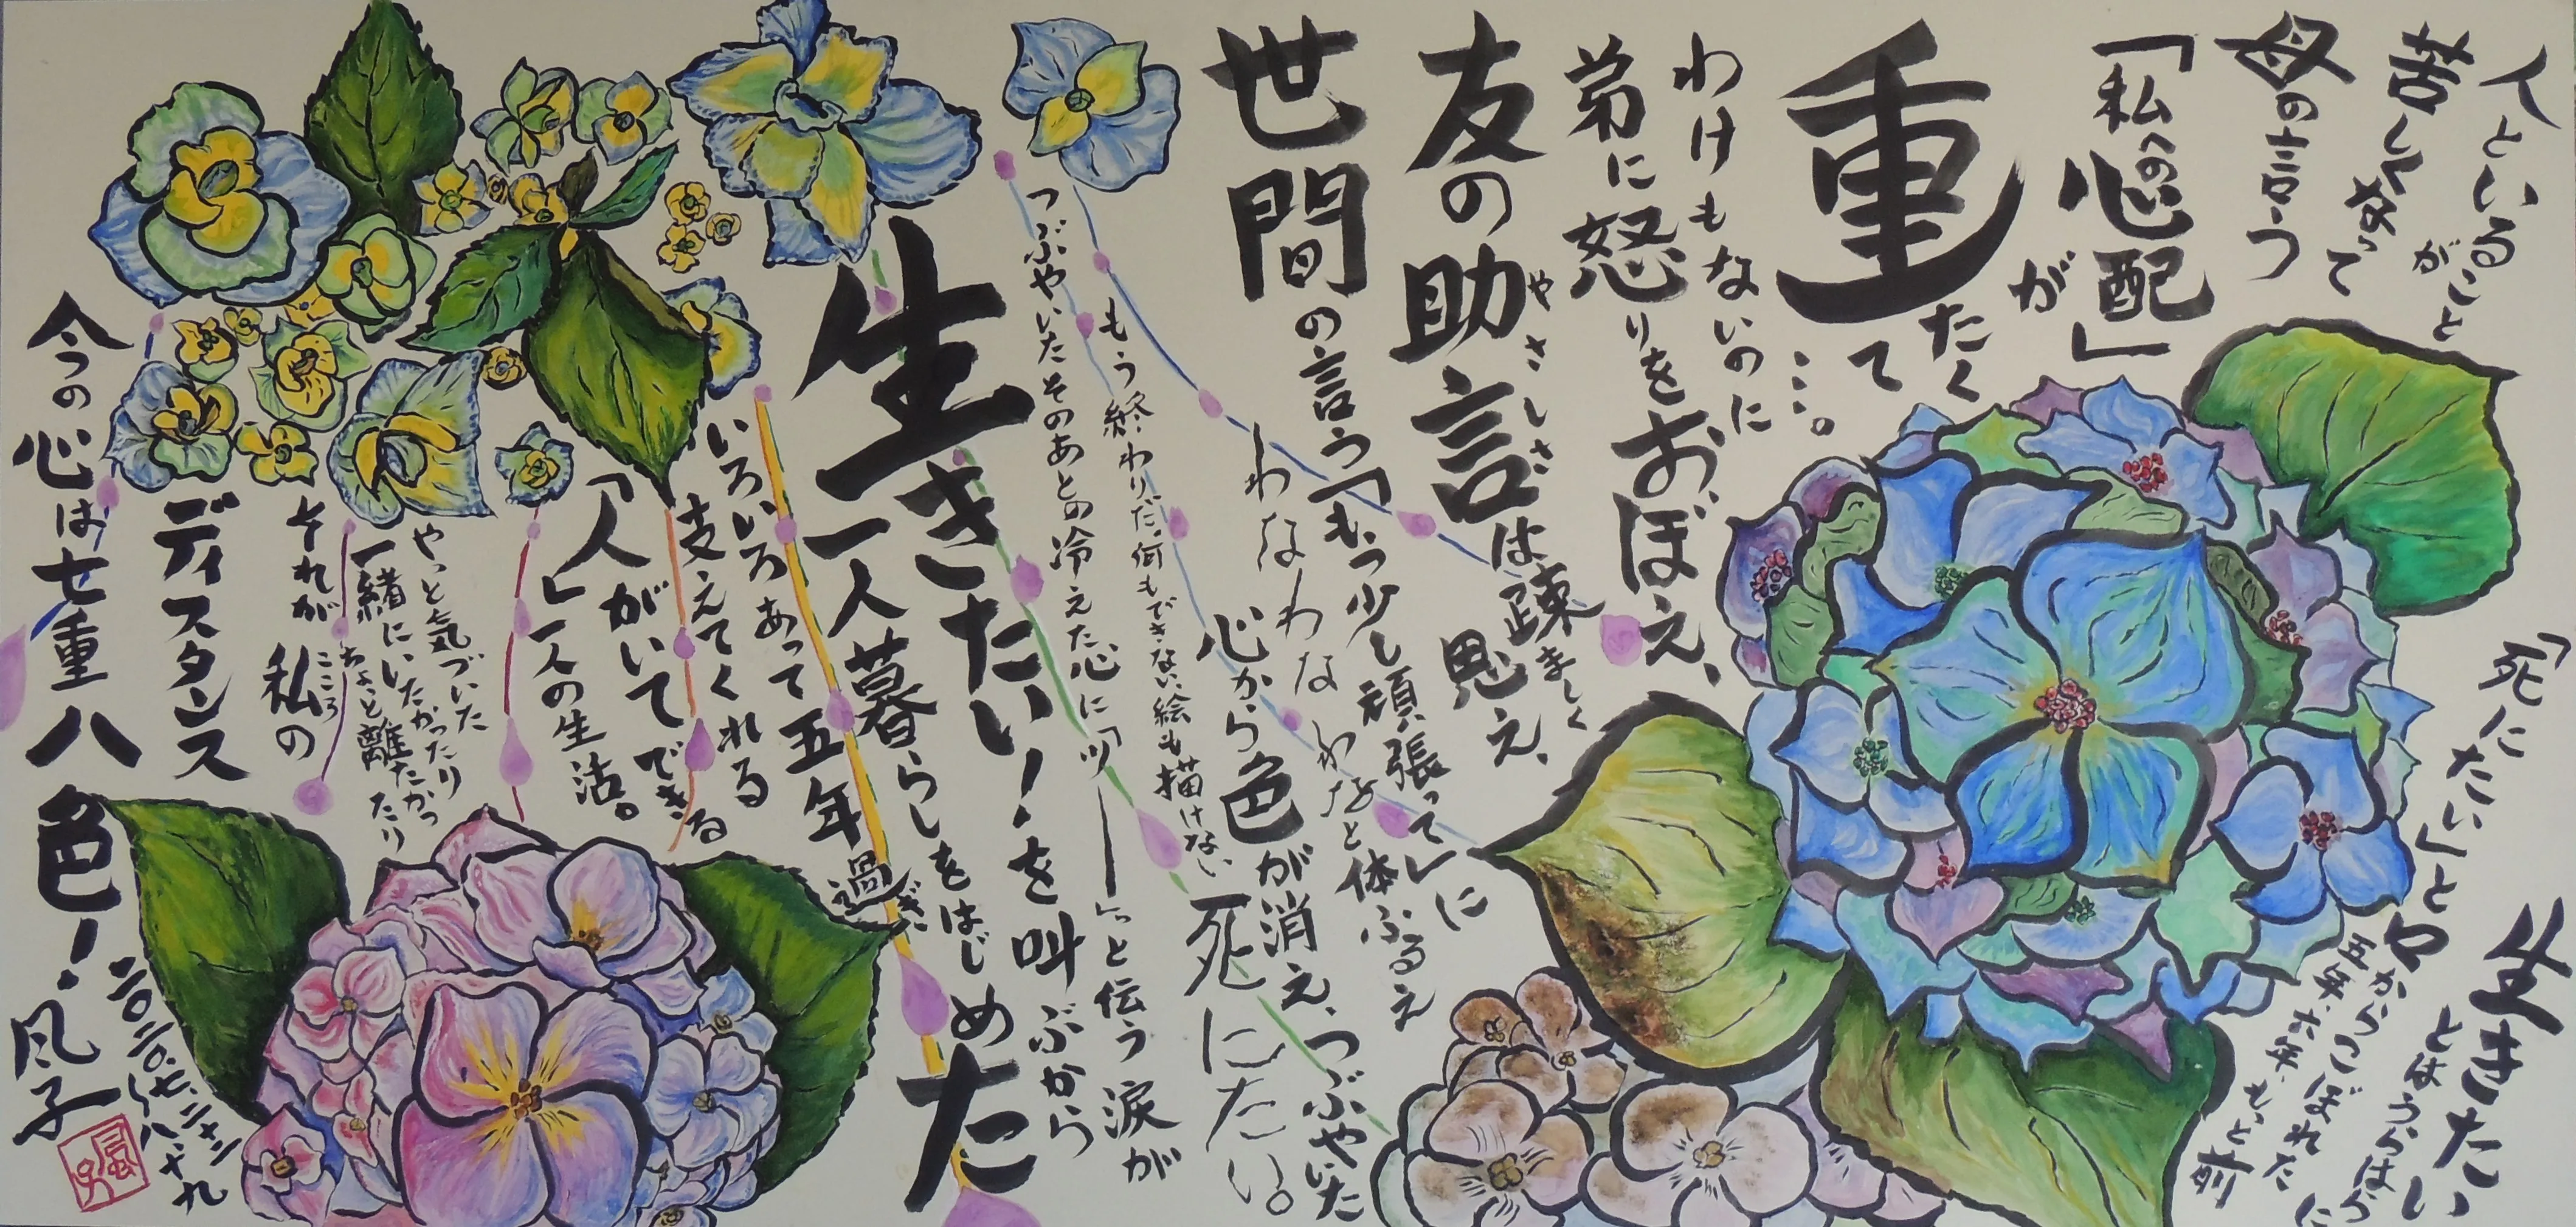 人といること
が
苦しくなって
母の言う
「私への心配」
が
重たく
て
・・・。
わけもないのに
弟に怒りをおぼえ、
友の助言は疎ましく
やさしさ
思え、
世間の言う「もう少し頑張って」に
わなわなわなわなと体ふるえ
心から色が消え、つぶやいた
死にたい。
「死にたい」と
生きたい
とはうらはらに
口からこぼれた
五年、六年、もっと前
もう終わりだ、何もできない、絵も描けない
つぶやいたそのあとの冷えた心に「ツ———」っと伝う涙が
生きたい!を叫ぶから
一人暮らしをはじめた
いろいろあって五年過ぎた
支えてくれる
「人」がいてできる
一人の生活。
やっと気づいた
一緒にいたかったり
ちょっと離れたかったり
それが私の
こころ
ディスタンス
今の心は七重八色!
二〇二〇.七.二十二〜八.十九
風子